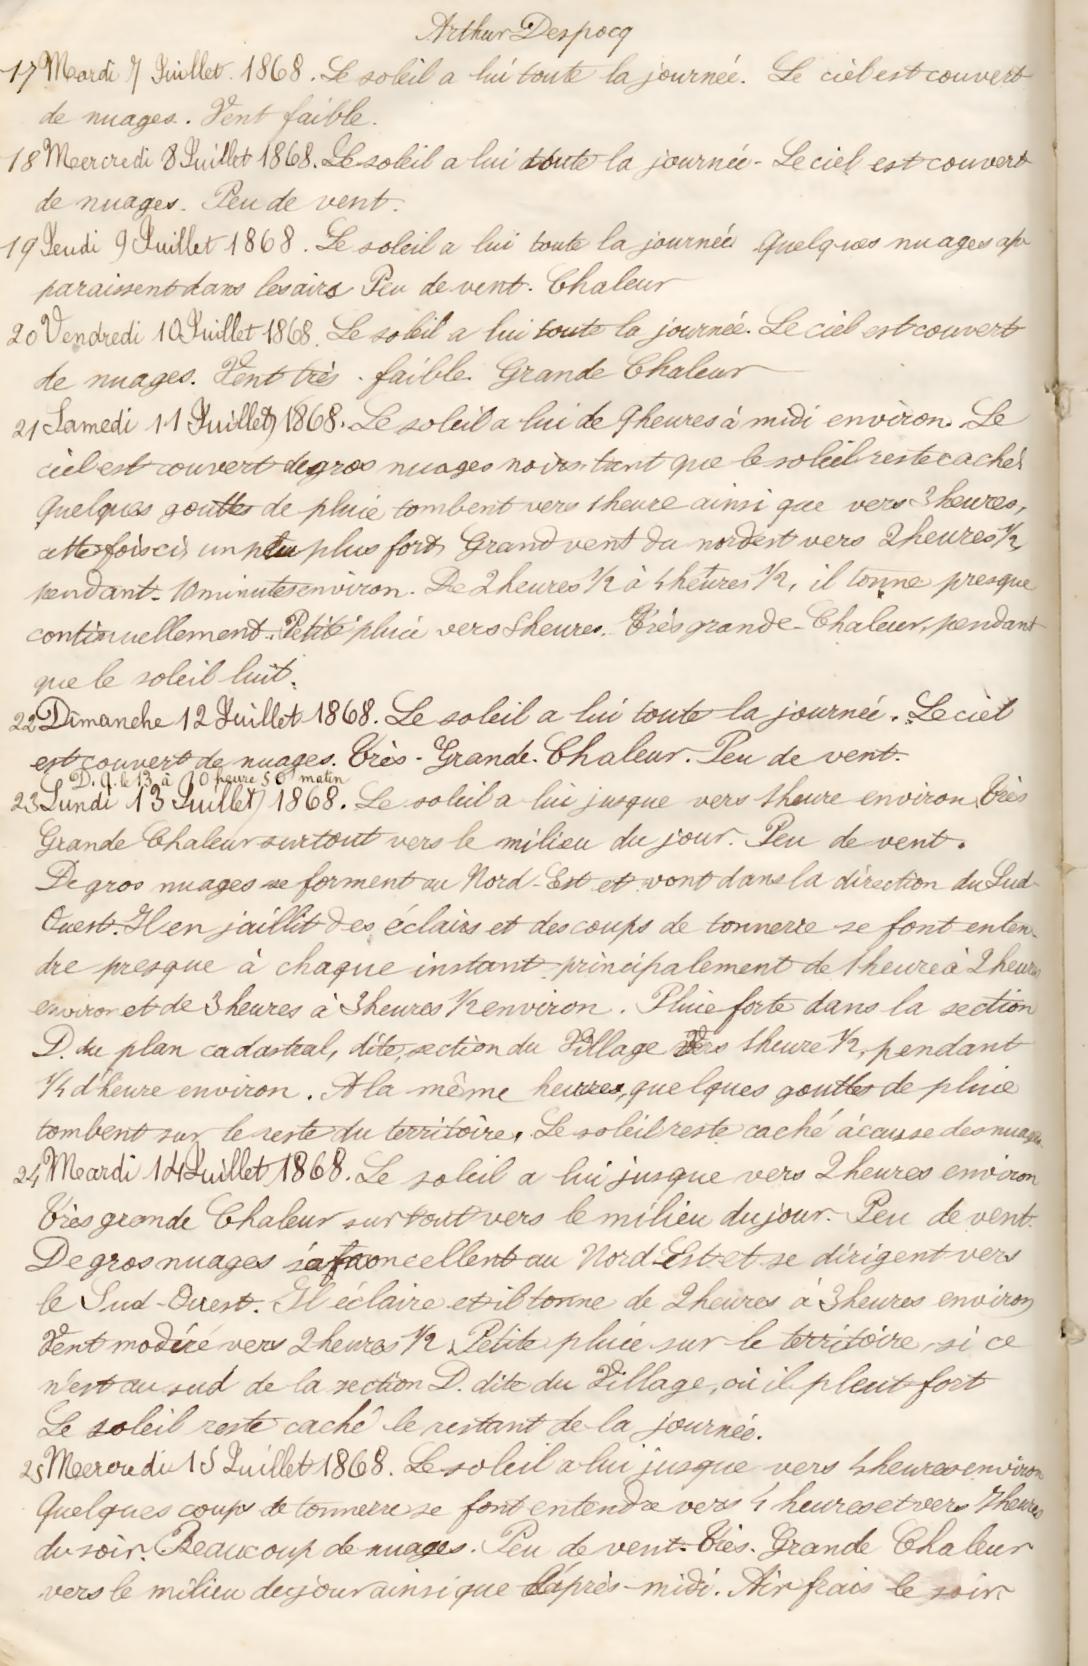 Arthur Despocq
17 Mardi 7 Juillet 1868. Le soleil a lui toute la journée. Le ciel est couvert
de nuages. Vent faible.
18 Mercredi 8 Juillet 1868. Le soleil a lui toute la journée - Le ciel est couvert
de nuages. Peu de vent.
19 Jeudi 9 Juillet 1868. Le soleil a lui toute la journée Quelques nuages ap-
paraissent dans les airs Peu de vent. Chaleur
20 Vendredi 10 Juillet 1868. Le soleil a lui toute la journée. Le ciel est couvert
de nuages. Vent très faible. Grande Chaleur
21 Samedi 11 Juillet 1868. Le soleil a lui de 9 heures à midi environ. Le
ciel est couvert de gros nuages noirs, tant que le soleil reste caché.
Quelques gouttes de pluie tombent vers 1 heure ainsi que vers 3 heures,
cette fois ci un peu plus fort, Grand vent du nord est vers 2 heures 1/2,
pendant 10 minutes environ. De 2 heures 1/2 à 4 heures 1/2, il tonne presque
continuellement. Petite pluie vers 8 heures. Très grande Chaleur, pendant
que le soleil luit.
22 Dimanche 12 Juillet 1868. Le soleil a lui toute la journée. Le ciel
est couvert de nuages. Très-Grande Chaleur. Peu de vent.
D. Q. le 13 à 10 heure 50 matin
23 Lundi 13 Juillet 1868. Le soleil a lui jusque vers 1 heure environ Très
Grande Chaleur surtout vers le milieu du jour. Peu de vent.
De gros nuages se forment au Nord-Est et vont dans la direction du Sud-
Ouest. Il en jaillit des éclairs et des coups de tonnerre se font enten-
dre presque à chaque instant principalement de 1 heure à 2 heures
environ et de 3 heures à 3 heures 1/2 environ. Pluie forte dans la section
D. du plan cadastral, dite, section du Village vers 1 heure 1/2, pendant
1/4 d'heure environ. A la même heure, quelques gouttes de pluie
tombent sur le reste du territoire. Le soleil reste caché à cause des nuages.
24 Mardi 14 Juillet 1868. Le soleil a lui jusque vers 2 heures environ
Très grande Chaleur surtout vers le milieu du jour. Peu de vent.
De gros nuages au Nord Est et se dirigent vers
le Sud-Ouest. Il éclaire et il tonne de 2 heures à 3 heures environ
Vent modéré vers 2 heures 1/2. Petite pluie sur le territoire, si ce
n'est au sud de la section D. dite du Village, où il pleut fort
Le soleil reste caché le restant de la journée.
25 Mercredi 15 Juillet 1868. Le soleil a lui jusque vers 4 heures environ
Quelques coups de tonnerre se font entendre vers 4 heures et vers 7 heures
du soir. Beaucoup de nuages. Peu de vent. Très-Grande Chaleur
vers le milieu du jour ainsi que l'après-midi. Air frais le soir